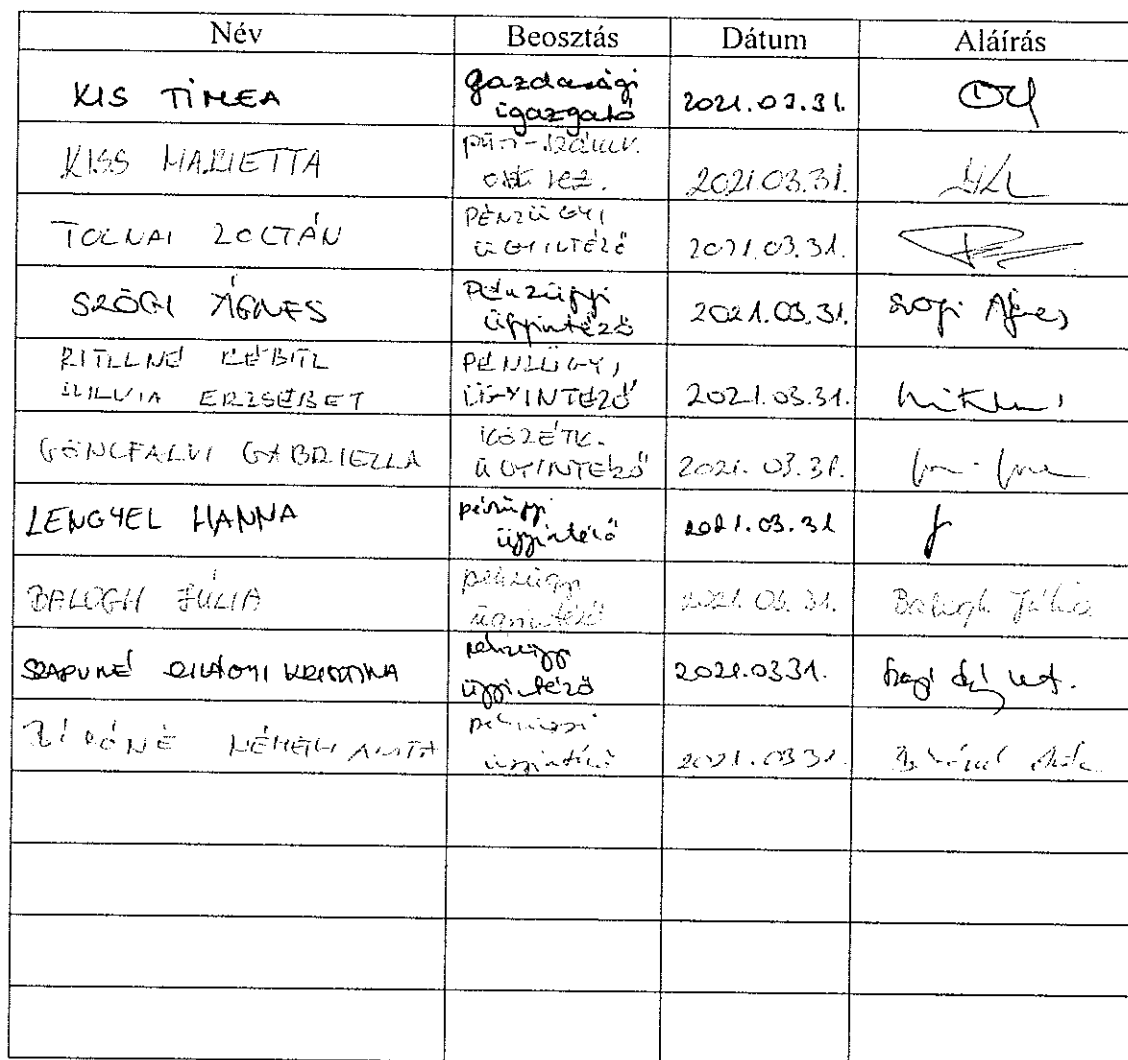 Név Beosztás Dátum Aláírás
KIS TÍMEA gazdasági igazgató 2021.03.31.
KISS MARIETTA pü.-i-számv. oszt. vez. 2021.03.31.
TOLNAI ZOLTÁN PÉNZÜGYI ÜGYINTÉZŐ 2021.03.31.
SZÖGI ÁGNES pénzügyi ügyintéző 2021.03.31. Szögi Ágnes
SZILVIA ERZSÉBET PÉNZÜGYI ÜGYINTÉZŐ 2021.03.31.
GÖNCFALVI GABRIELLA KÖZÉTK. ÜGYINTÉZŐ 2021.03.31.
LENGYEL HANNA pénzügyi ügyintéző 2021.03.31
BALOGH JÚLIA pénzügyi ügyintéző 2021.03.31. Balogh Júlia
SZILÁGYI KRISZTINA pénzügyi ügyintéző 2021.03.31.
BÍRÓNÉ NÉMETH ANITA pénzügyi ügyintéző 2021.03.31.